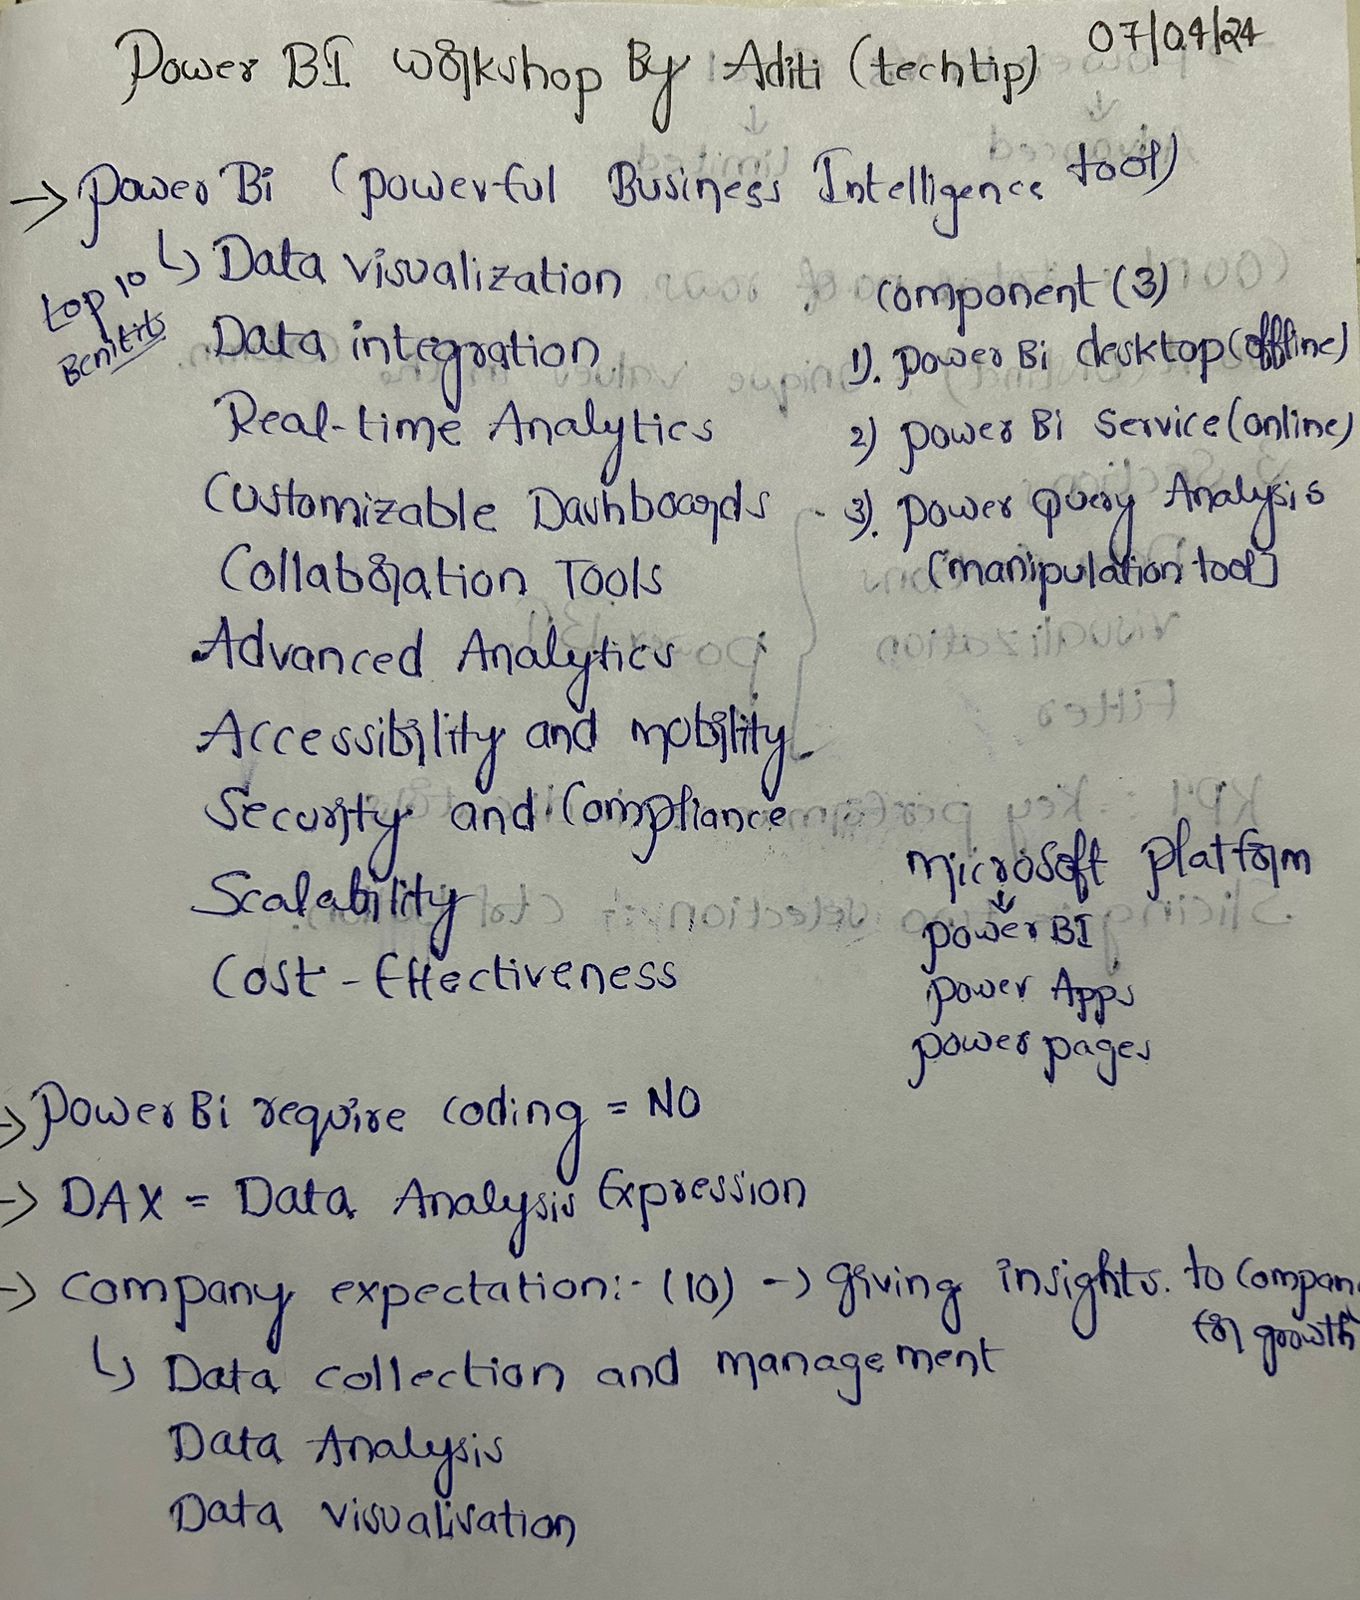 Power BI workshop By Aditi (techtip) 07/04/24
→ Power Bi (powerful Business Intelligence tool)
Top 10 Benifits
↳ Data visualization
Data integration
Real-time Analytics
Customizable Dashboards
Collaboration Tools
Advanced Analytics
Accessibility and mobility
Security and Compliance
Scalability
Cost-Effectiveness
component (3)
1). Power Bi desktop (offline)
2) power Bi Service (online)
3). power query Analysis
(manipulation tool)
microsoft platform
↓
power BI
power Apps
power pages
→ Power Bi require coding = NO
→ DAX = Data Analysis Expression
→ company expectation:- (10) → giving insights. to Compan
for growth
↳ Data collection and management
Data Analysis
Data visualisation